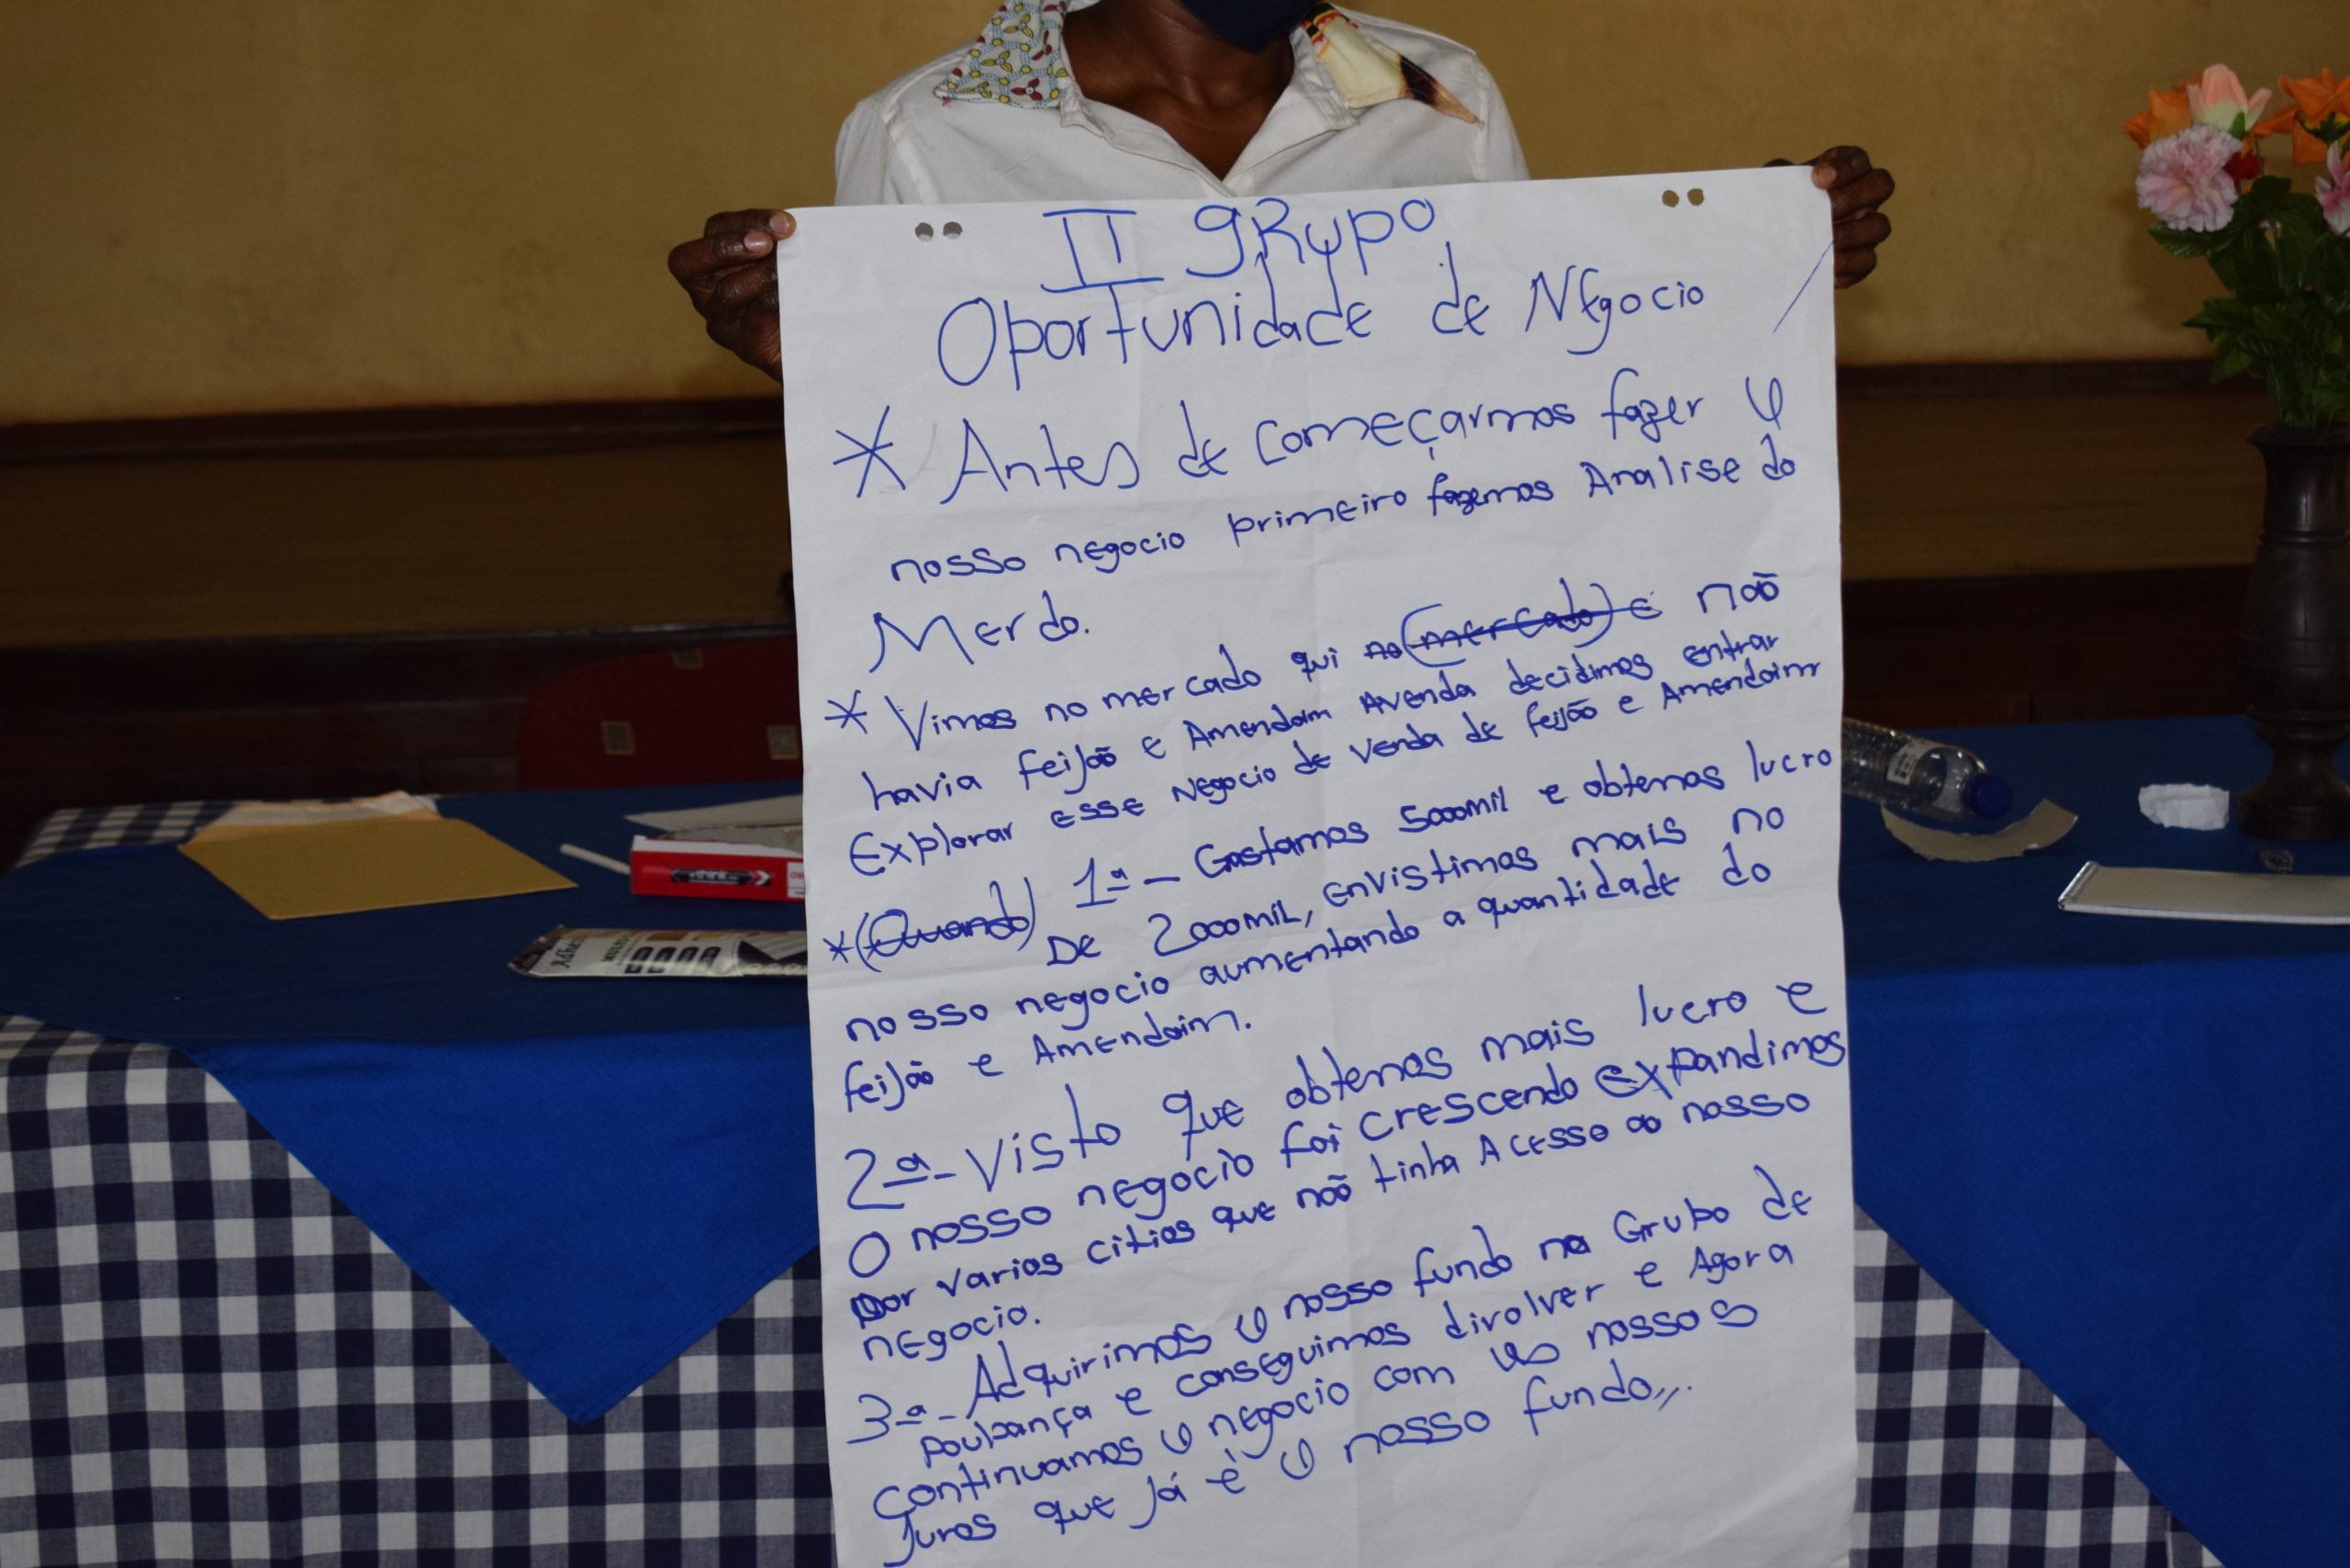 II gRupo
Oportunidade de Negocio
* Antes de começarmos fazer o
nosso negocio primeiro fazemos Analise do
Merdo.
* Vimos no mercado qui no (mercado) e não
havia feijão e Amendoim Avenda decidimos entrar
Explorar esse Negocio de Venda de feijão e Amendoim
*(Quando) 1ª - Gastamos 5000mil e obtemos lucro
De 2000mil, envistimos mais no
nosso negocio aumentando a quantidade do
feijão e Amendoim.
2ª - Visto que obtemos mais lucro e
O nosso negocio foi crescendo expandimos
por varios citios que não tinha Acesso ao nosso
negocio.
3ª - Adquirimos o nosso fundo na Grupo de
poupança e conseguimos divolver e Agora
continuamos o negocio com os nossos
Juros que já é o nosso fundo,,.
think